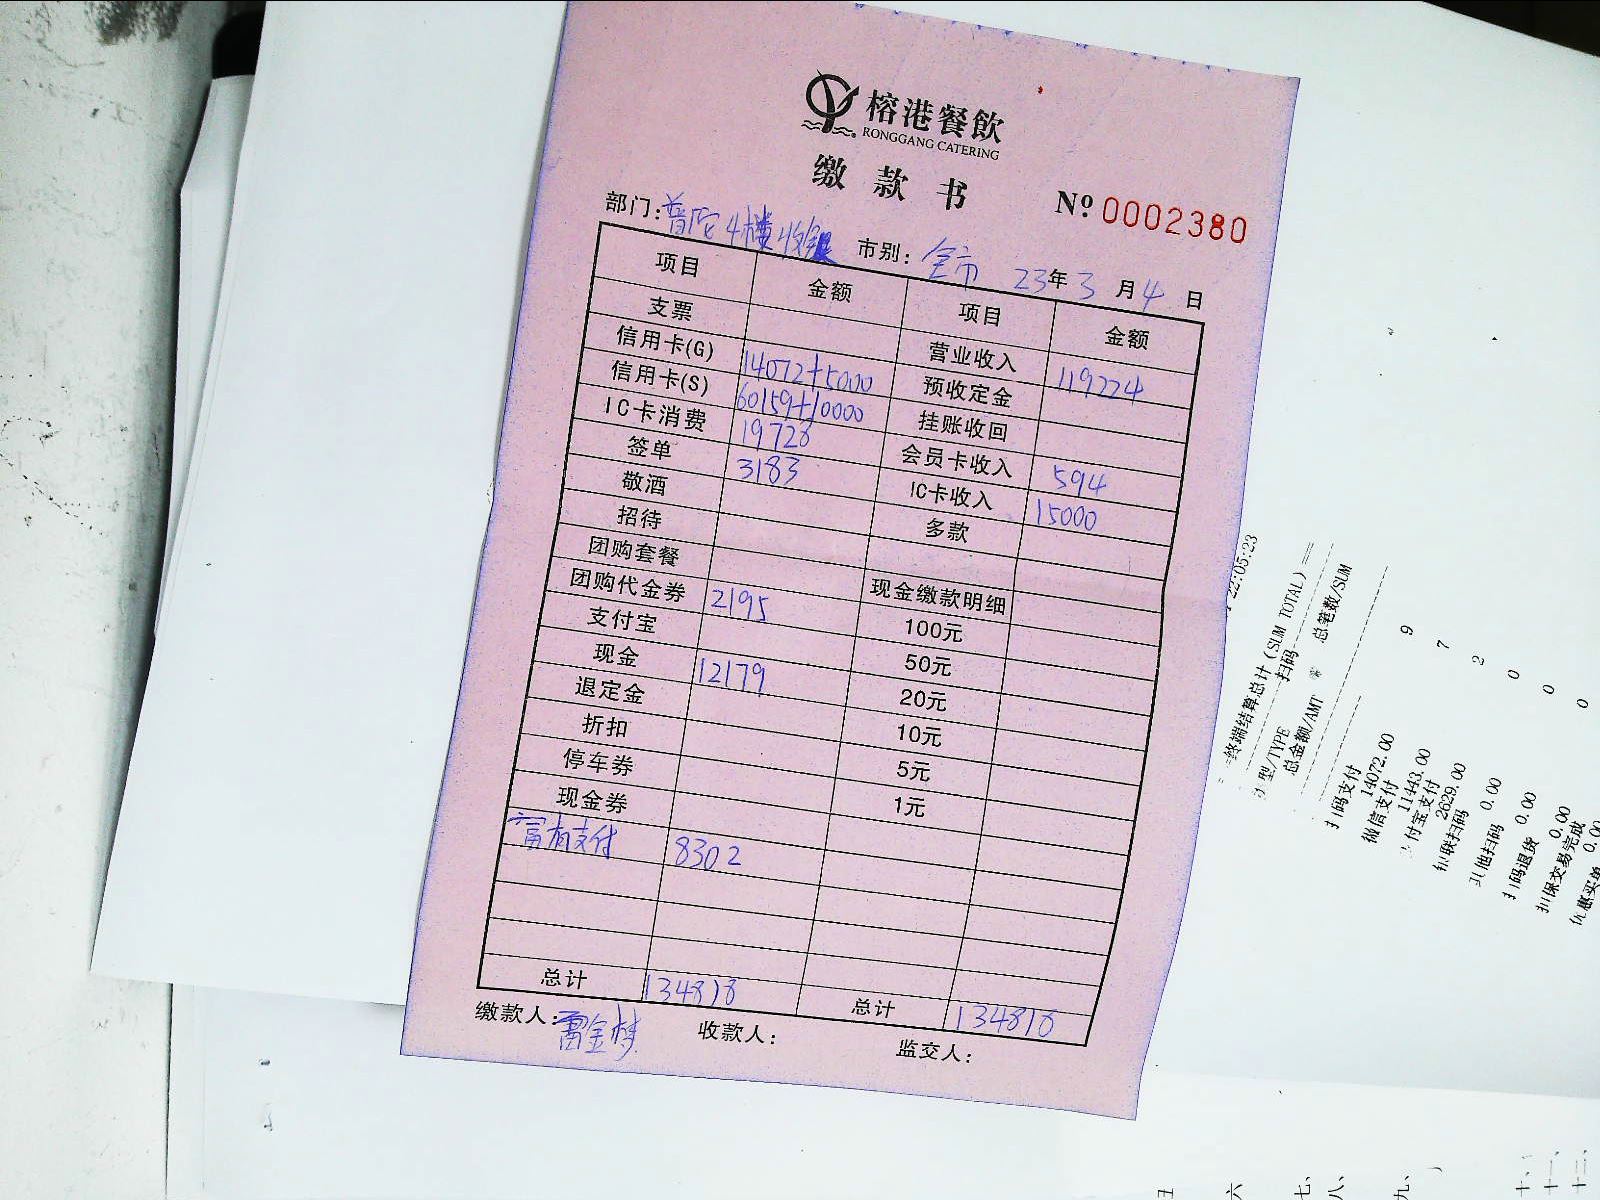 榕港餐飲
RONGGANG CATERING
缴款书
Nº 0002380
部门:普陀4楼收银 市别:全市 23年3月4日
项目 金额 项目 金额
支票 营业收入 119224
信用卡(G) 14072+5000 预收定金
信用卡(S) 60159+10000 挂账收回
IC卡消费 19728 会员卡收入 594
签单 3183 IC卡收入 15000
敬酒 多款
招待
团购套餐 现金缴款明细
团购代金券 2195 100元
支付宝 50元
现金 12179 20元
退定金 10元
折扣 5元
停车券 1元
现金券
富有支付 8302
总计 134818 总计 134818
缴款人: 收款人: 监交人:
22:05:23
终端结算总计(SUM TOTAL)
型/TYPE 扫码
总金额/AMT 总笔数/SUM
扫码支付
14072.00 9
微信支付
11443.00 7
付宝支付
2629.00 2
银联扫码
0.00 0
其他扫码
0.00 0
扫码退货
0.00 0
担保交易完成
0.00
优惠买单
六、
七、
八、
九、
十、
十一、
十二、